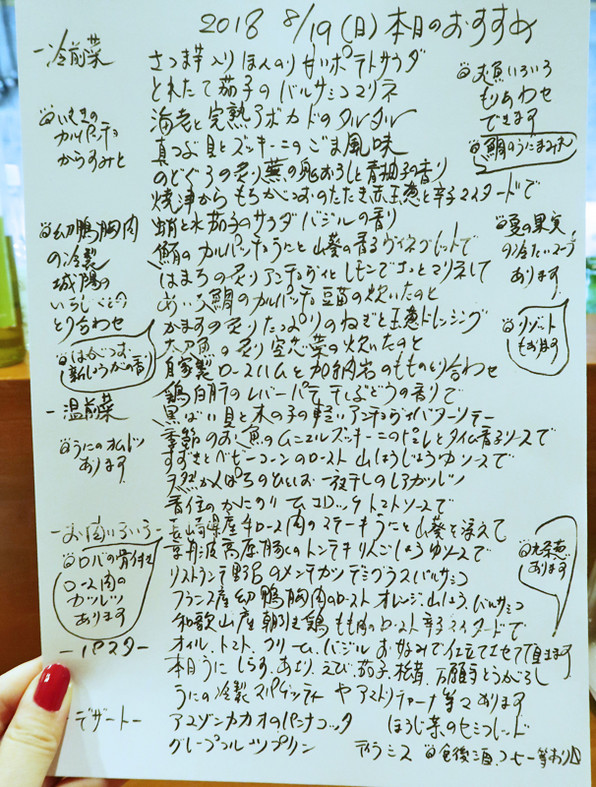 2018 8/19(日)本日のおすすめ
-冷前菜
さつま芋入りほんのり甘いポテトサラダ
とれたて茄子のバルサミコマリネ
海老と完熟アボカドのタルタル
真つぶ貝とズッキーニのごま風味
のどぐろの炙り蕪の鬼おろしと青柚子の香り
焼津からもちがつおのたたき赤玉葱と辛子マスタードで
蛸と水茄子のサラダバジルの香り
鮪のカルパッチョうにと山葵の香るヴィネグレットで
はまちの炙りアンチョヴィとレモンでさっとマリネして
あいち鯛のカルパッチョ豆苗の炊いたのと
かますの炙りたっぷりのねぎと玉葱ドレッシング
の炙り空芯菜の炊いたのと
自家製ロースハムと加納岩のもものとり合わせ
鶏白肝のレバーパテ干しぶどうの香りで
いさきの
カルパッチョ
からすみと
幼鴨胸肉
の冷製
城陽の
いちじくとの
とり合わせ
はがつお
新しょうがの香り
お魚いろいろ
もりあわせ
できます
鯛のうにまみれ
夏の果実
の冷たいスープ
あります
リゾット
もあります
-温前菜
黒ばい貝と木の子の軽いアンチョヴィバターソテー
季節のお魚のムニエルズッキーニのピュレとタイム香るソースで
すずきとベビーコーンのロースト山しょうじょうゆソースで
天然かんぱちのひとしお一夜干しのレアカツレツ
香住のかにクリームコロッケトマトソースで
うにのオムレツ
あります
-お肉いろいろ-
長崎県産牛ロース肉のステーキうにと山葵を添えて
京丹波高原豚のトンテキりんごしょうゆソースで
リストランテ野呂のメンチカツデミグラスバルサミコ
フランス産幼鴨胸肉のローストオレンジ、山しょう、バルサミコ
和歌山産朝引き鶏もも肉のロースト辛子マスタードで
ロバの骨付き
ロース肉の
カツレツ
あります
あります
-パスタ-
オイル、トマト、クリーム、バジルお好みで仕立てさせて頂きます
本日うに、しらす、あさり、えび、茄子、枝青、万願寺とうがらし
うにの冷製スパゲッティーやアマトリチャーナ等々あります
-デザート-
アマゾンカカオのパンナコッタ ほうじ茶のセミフレッド
グレープフルーツプリン ティラミス 食後酒、コーヒー等あり